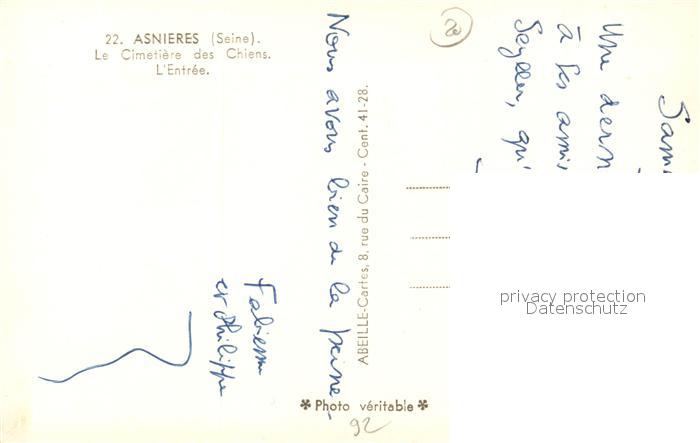 22. ASNIERES (Seine).
Le Cimetière des Chiens.
L'Entrée.
20
Sam
Une dern
à ses amis
Seyller, qu'
Nous avons bien de la peine -
Fabienne
et Philippe
ABEILLE-Cartes, 8, rue du Caire - Cent. 41-28.
✻ Photo véritable ✻
92
privacy protection
Datenschutz